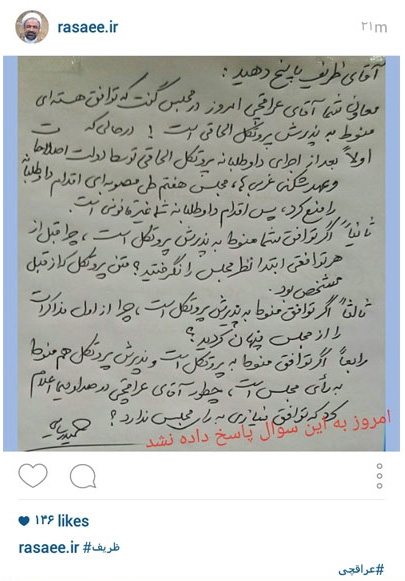 rasaee.ir
۲۱m
آقای ظریف پاسخ دهید:
معاون شما آقای عراقچی امروز در مجلس گفت که توافق هسته‌ای
منوط به پذیرش پروتکل الحاقی است! درحالی که
اولاً بعد از اجرای داوطلبانه پروتکل الحاقی توسط دولت اصلاحات
و عهدشکنی غربی‌ها، مجلس هفتم طی مصوبه‌ای اقدام داوطلبانه
را منع کرد، پس اقدام داوطلبانه شما غیرقانونی است.
ثانیاً اگر توافق شما منوط به پذیرش پروتکل است، چرا قبل از
هر توافقی ابتدا نظر مجلس را نگرفتید؟ متن پروتکل که از قبل
مشخص بود.
ثالثاً اگر توافق منوط به پذیرش پروتکل است، چرا از اول مذاکرات
را از مجلس پنهان کردید؟
رابعاً اگر توافق منوط به پروتکل است و پذیرش پروتکل هم منوط
به رأی مجلس است، چطور آقای عراقچی در صداوسیما اعلام
کرد که توافق نیازی به رای مجلس ندارد؟
امروز به این سوال پاسخ داده نشد
۱۳۶ likes
rasaee.ir #ظریف
#عراقچی